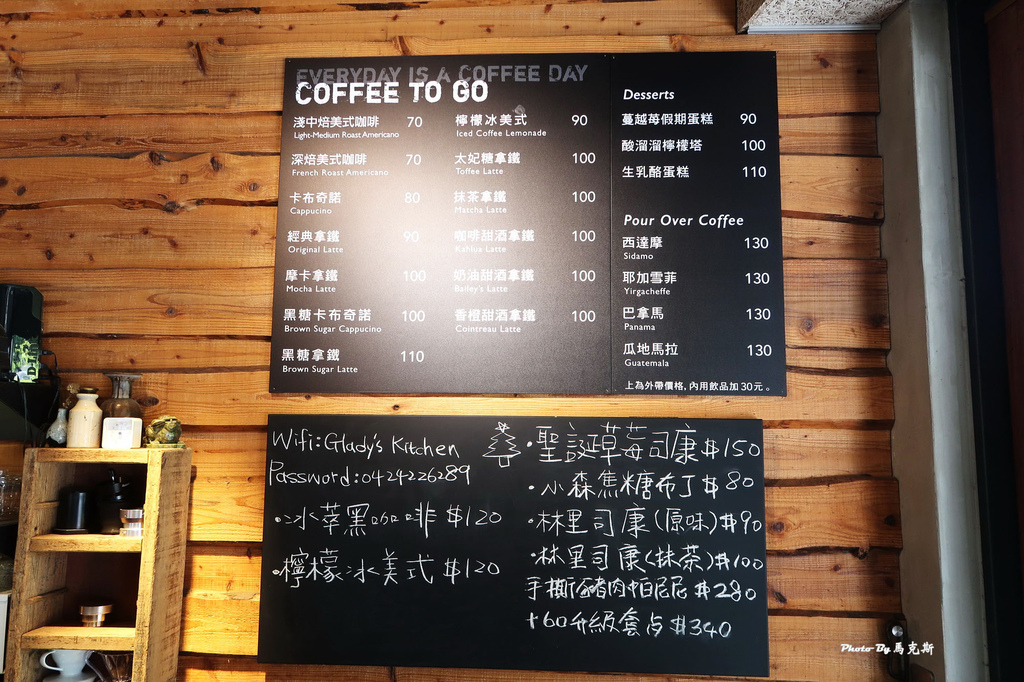 EVERYDAY IS A COFFEE DAY
COFFEE TO GO
淺中焙美式咖啡 70
Light-Medium Roast Americano
深焙美式咖啡 70
French Roast Americano
卡布奇諾 80
Cappucino
經典拿鐵 90
Original Latte
摩卡拿鐵 100
Mocha Latte
黑糖卡布奇諾 100
Brown Sugar Cappucino
黑糖拿鐵 110
Brown Sugar Latte
檸檬冰美式 90
Iced Coffee Lemonade
太妃糖拿鐵 100
Toffee Latte
抹茶拿鐵 100
Matcha Latte
咖啡甜酒拿鐵 100
Kahlua Latte
奶油甜酒拿鐵 100
Bailey's Latte
香橙甜酒拿鐵 100
Cointreau Latte
Desserts
蔓越莓假期蛋糕 90
酸溜溜檸檬塔 100
生乳酪蛋糕 110
Pour Over Coffee
西達摩 130
Sidamo
耶加雪菲 130
Yirgacheffe
巴拿馬 130
Panama
瓜地馬拉 130
Guatemala
上為外帶價格, 內用飲品加30元。
Wifi: Glady's Kitchen
Password: 0424226289
·冰萃黑咖啡 $120
·檸檬冰美式 $120
·聖誕草莓司康 $150
·小森焦糖布丁 $80
·林里司康(原味) $90
·林里司康(抹茶) $100
手撕豬肉帕尼尼 $280
+60升級套餐 $340
Photo By 馬克斯